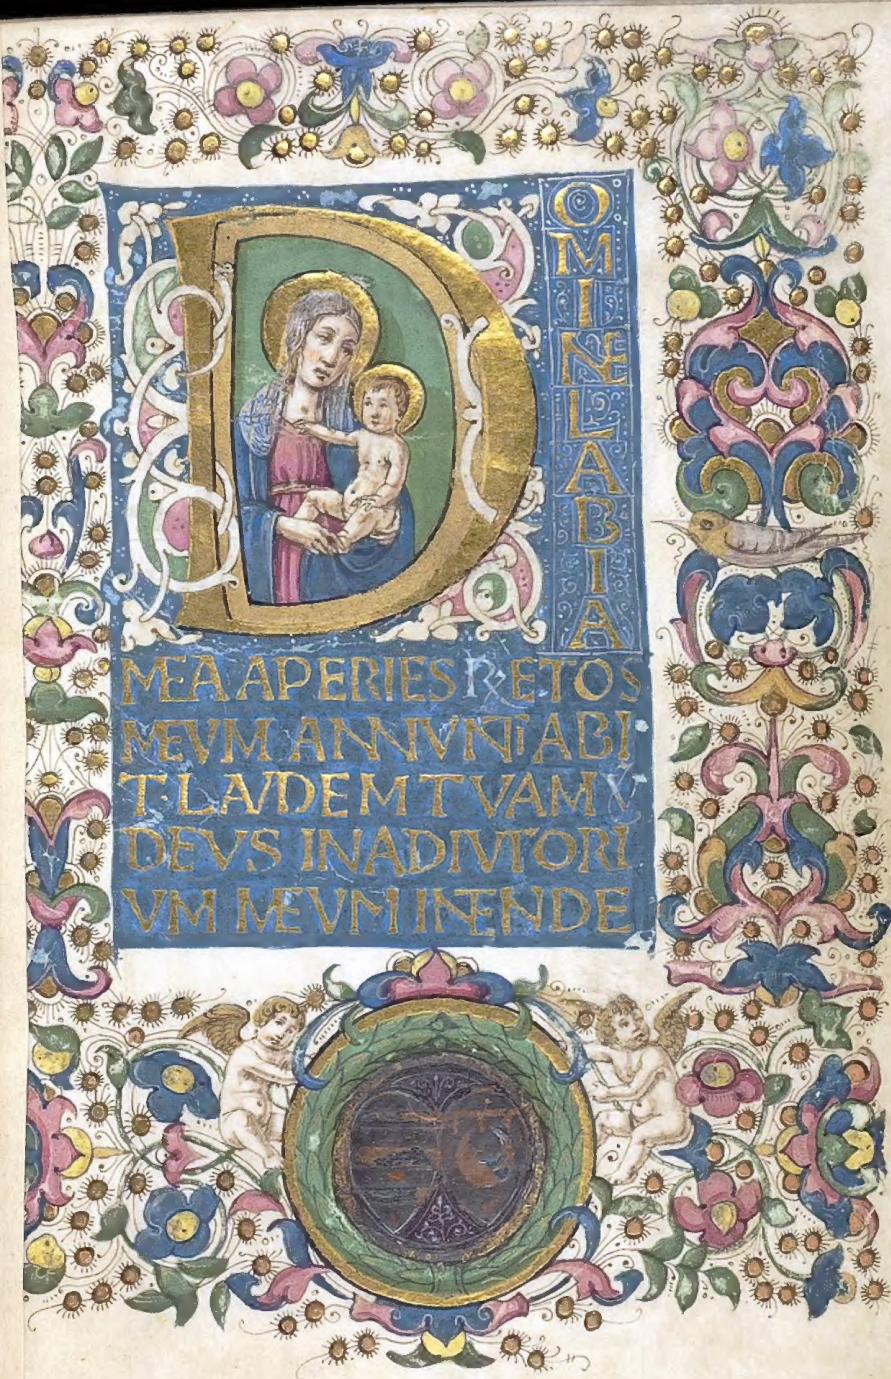 DOMINE LABIA
MEA APERIES ℟ ET OS
MEVM ANNVNTIABI
T·LAVDEM TVAM ℣
DEVS IN ADIVTORI
VM MEVM INTENDE